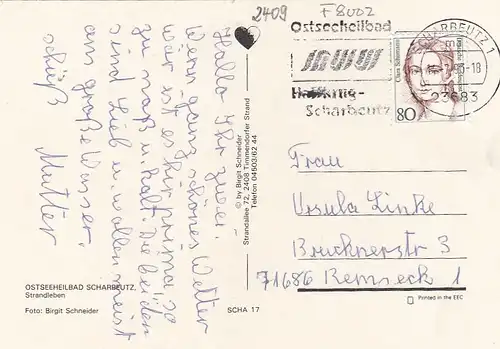 2409
F8002
Ostseeheilbad
Haffkrug-
Scharbeutz
SCHARBEUTZ 1
-18
23683
Clara Schumann
80
Hallo Ihr zwei.
Wenn ganz schönes Wetter
wär ist es hir prima, so
zu naß u. kalt. Die beiden
sind Lieb u. wollen meist
ans große Wasser.
schüß Mutter
© by Birgit Schneider
Strandallee 72, 2408 Timmendorfer Strand
Telefon 04503/62 44
Frau
Ursula Linke
Brucknerstr 3
71686 Remseck 1
OSTSEEHEILBAD SCHARBEUTZ,
Strandleben
Foto: Birgit Schneider
SCHA 17
Printed in the EEC